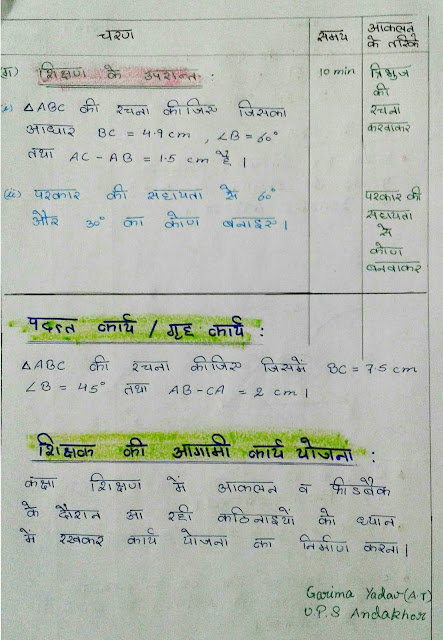 चरण समय आकलन के तरीके
ग) शिक्षण के उपरान्त : 10 min त्रिभुज
की
i) △ABC की रचना कीजिए जिसका रचना
आधार BC = 4.9 cm , ∠B = 60° करवाकर
तथा AC - AB = 1.5 cm है।
(ii) परकार की सहायता से 60° परकार की
और 30° का कोण बनाइए। सहायता
से
कोण
बनवाकर
प्रदत्त कार्य / गृह कार्य :
△ABC की रचना कीजिए जिसमें BC = 7.5 cm
∠B = 45° तथा AB-CA = 2 cm।
शिक्षक की आगामी कार्य योजना :
कक्षा शिक्षण में आकलन व फीडबैक
के दौरान आ रही कठिनाइयों को ध्यान
में रखकर कार्य योजना का निर्माण करना।
Garima Yadav (A.T)
U.P.S Andakhor